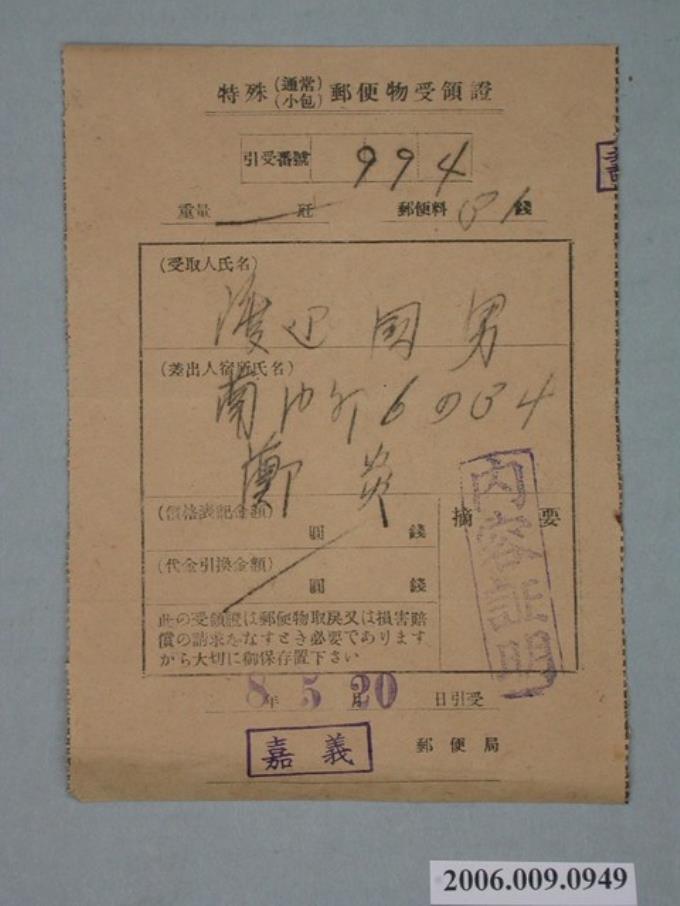 特殊(通常)(小包)郵便物受領證
引受番號 994
重量 瓩 郵便料 錢
(受取人氏名)
渡辺国男
(差出人宿所氏名)
南門外6の34
鄭炎
(價格表記金額)
圓 錢
(代金引換金額)
圓 錢
摘要
内容証明
此の受領證は郵便物取戾又は損害賠
償の請求をなすとき必要であります
から大切に御保存置下さい
8年5月20日引受
嘉義 郵便局
2006.009.0949